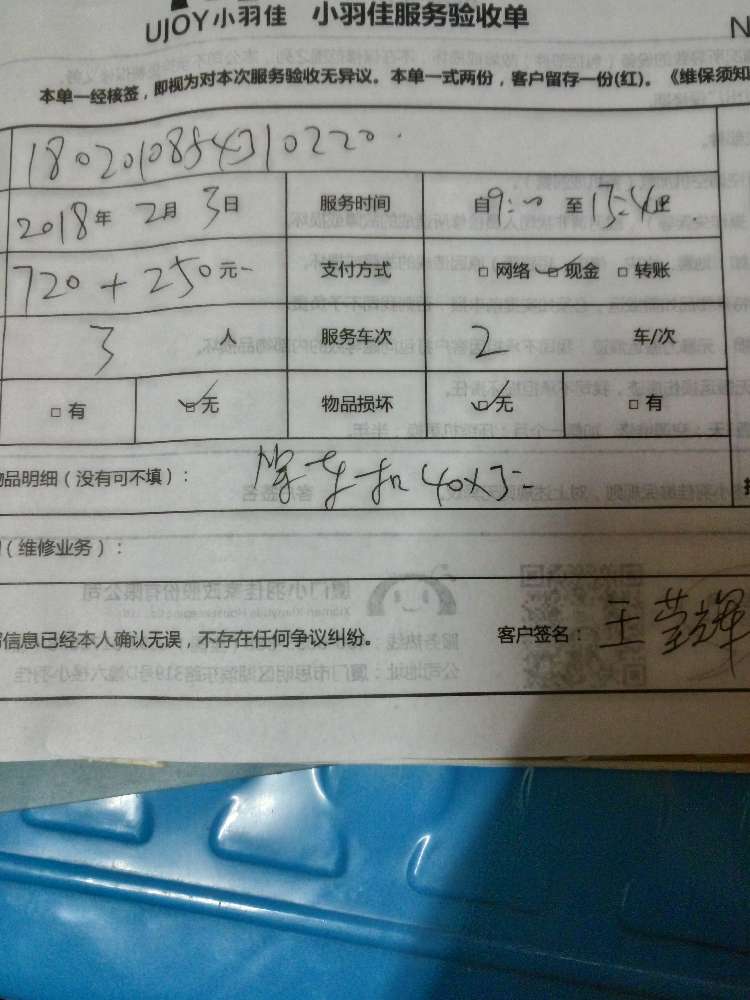 UJOY小羽佳 小羽佳服务验收单
N
本单一经核签，即视为对本次服务验收无异议。本单一式两份，客户留存一份(红)。《维保须知
1802010854310220
2018年 2月 3日 服务时间 自9:00 至 17:40止
720+250元 支付方式 □ 网络 □ 现金 □ 转账
3 人 服务车次 2 车/次
□ 有 □ 无 物品损坏 □ 无 □ 有
物品明细（没有可不填）： 40×3
（维修业务）：
信息已经本人确认无误，不存在任何争议纠纷。 客户签名： 王莹辉